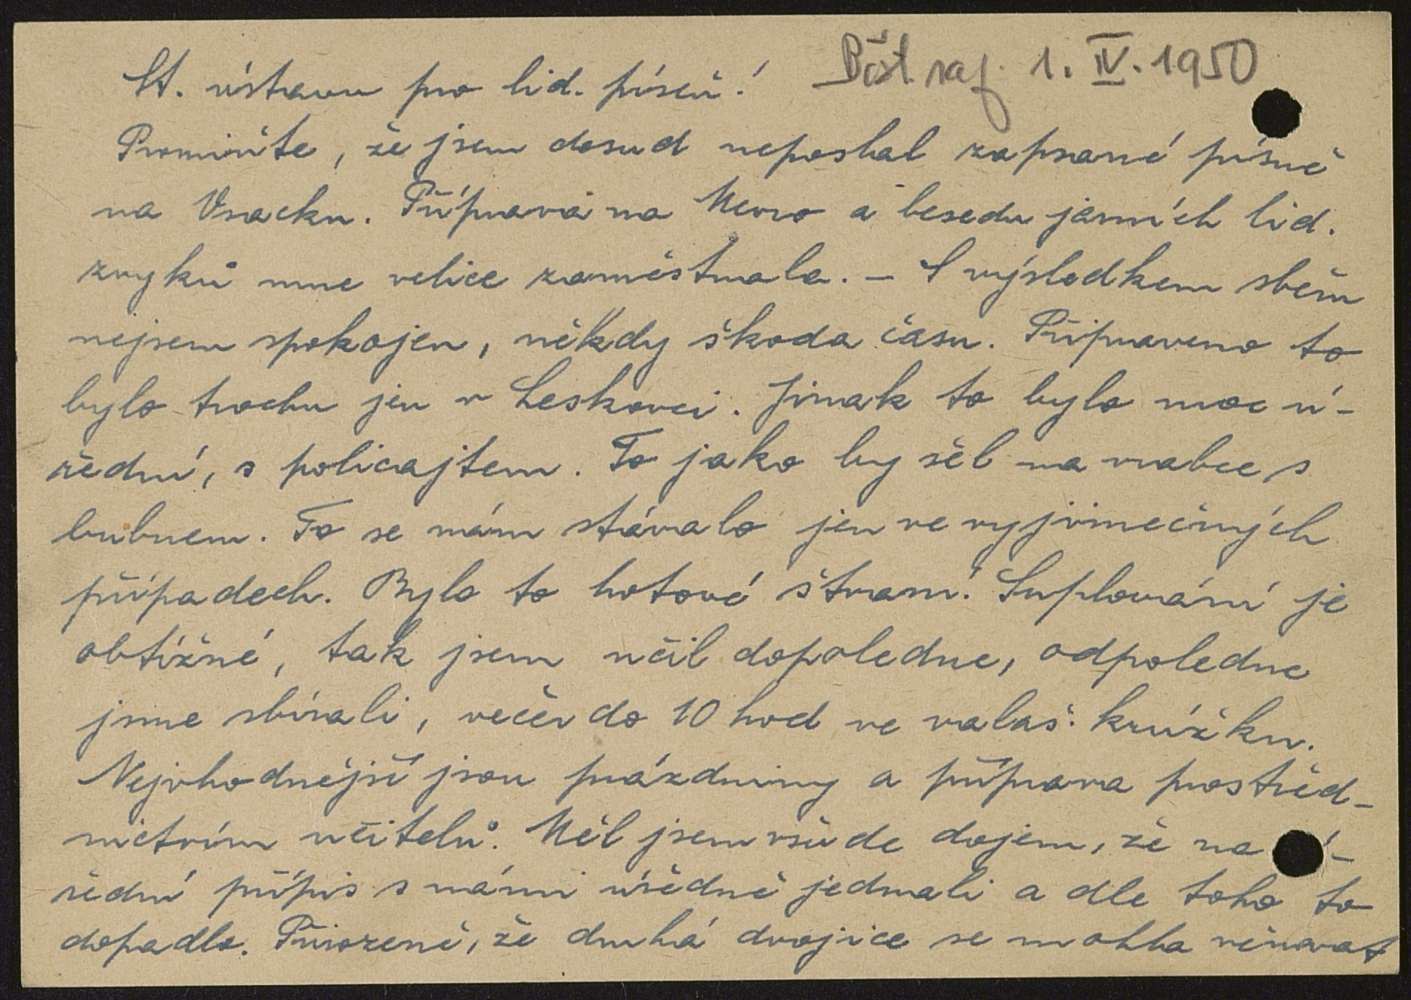 1. IV. 1950
St. ústavu pro lid. píseň!
Promiňte, že jsem dosud neposlal zapsané písně
na Vsacku. Příprava na a besedu jarních lid.
zvyků mne velice zaměstnala. – S výsledkem sběru
nejsem spokojen, někdy škoda času. Připraveno to
bylo trochu jen v Leskovci. Jinak to bylo moc ú-
řední, s policajtem. To jako by šel na vrabce s
bubnem. To se nám stávalo jen ve vyjímečných
případech. Bylo to hotové štvaní. Suplování je
obtížné, tak jsem učil dopoledne, odpoledne
jsme sbírali, večer do 10 hod ve valaš. krúžku.
Nejvhodnější jsou prázdniny a příprava prostřed-
nictvím učitelů. Měl jsem všude dojem, že na ú-
řední přípis s námi úředně jednali a dle toho to
dopadlo. Přirozeně, že druhá dvojice se mohla věnovat